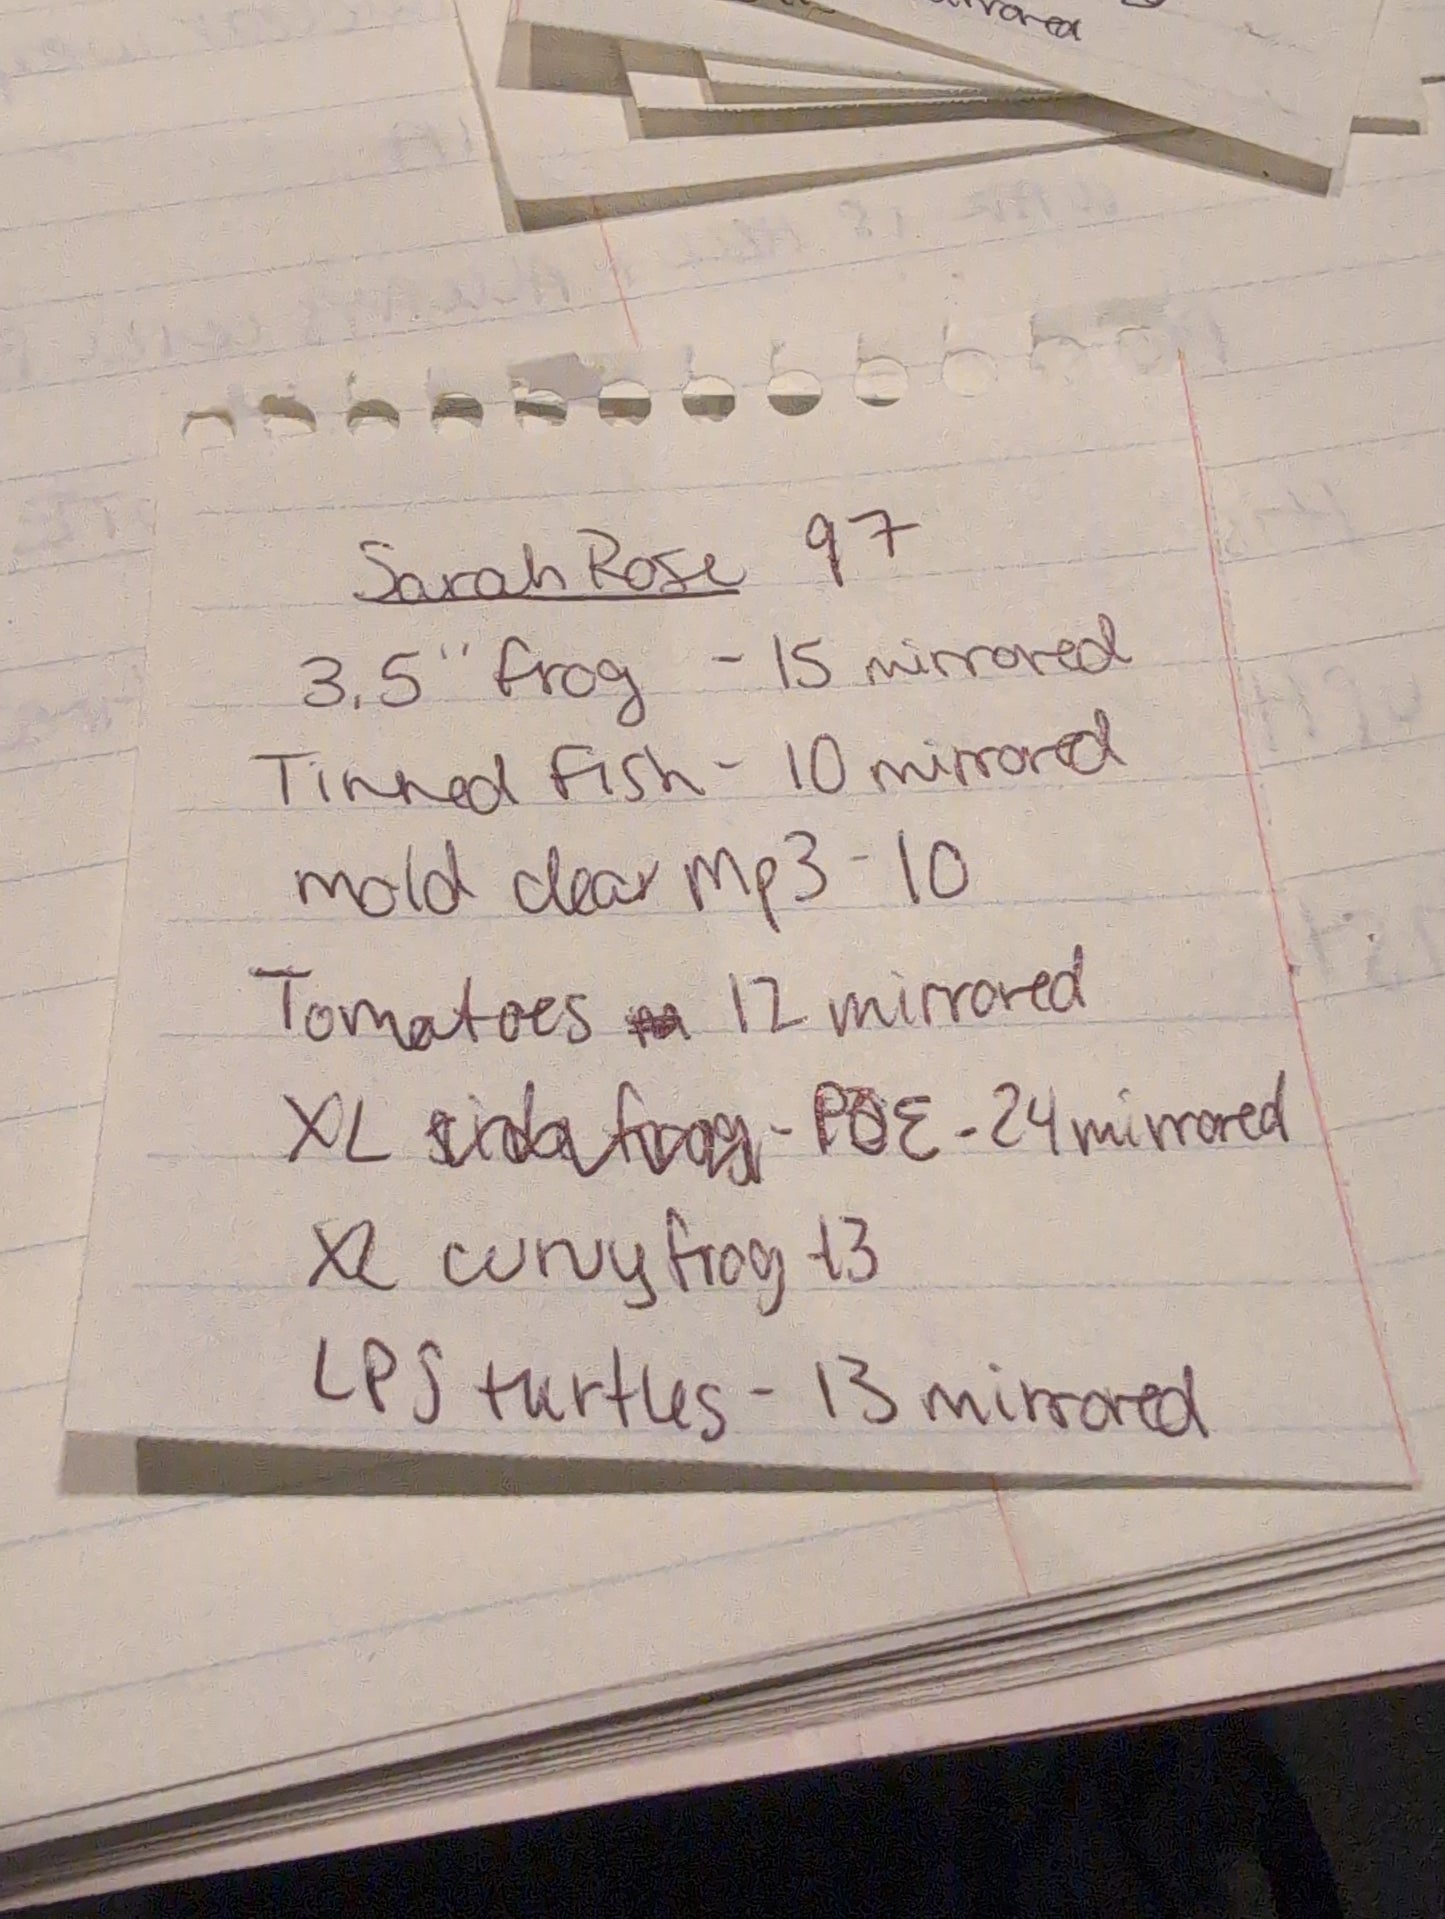 mirrored
Sarah Rose 97
3.5" frog - 15 mirrored
Tinned fish - 10 mirrored
mold clear Mp3 - 10
Tomatoes 12 mirrored
XL - POE - 24 mirrored
XL curvy frog - 13
LPS turtles - 13 mirrored